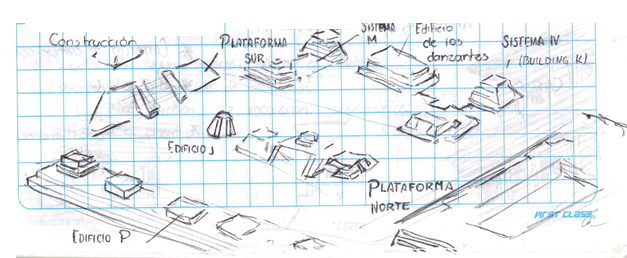 Construcción
PLATAFORMA
SUR
SISTEMA
M
Edificio
de los
danzantes
SISTEMA IV
, (BUILDING K)
EDIFICIO J
PLATAFORMA
NORTE
FIRST CLASS
EDIFICIO P